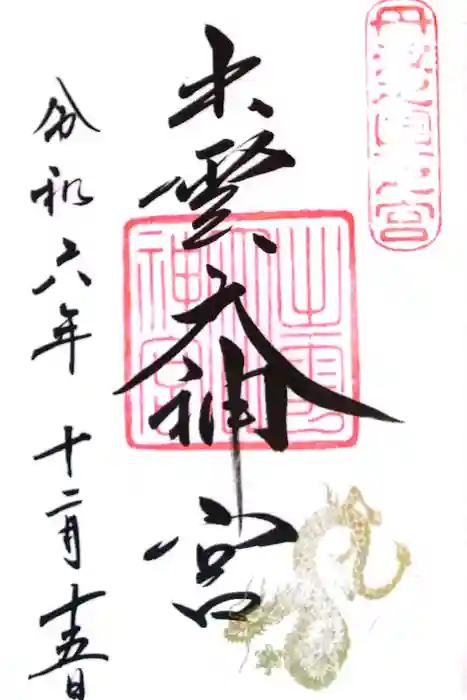 丹波國一宮
出雲大神宮
令和六年十二月十五日